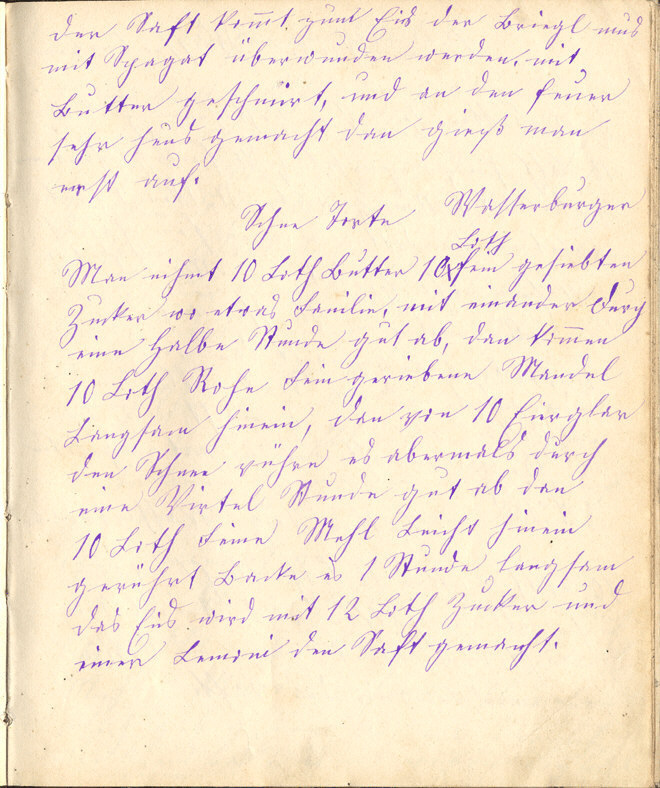 der Saft kommt zum Eis der Briegl mus
mit Spagat überwunden werden, mit
Butter geschmirt, und an den feuer
sehr heus gemacht dan gieß man
erst auf.
Schne Torte Wasserburger
Loth
Man nihmt 10 Loth Butter 10 fein gesiebten
Zucker wo etwas Fanilie, mit einander durch
eine Halbe Stunde gut ab, dan kommen
10 Loth Rohe Fein geriebene Mandel
Langsam hinein, dan von 10 Eierglar
den Schnee rühre es abermals durch
eine Virtel Stunde gut ab dan
10 Loth Feine Mehl Leicht hinein
gerührt Backe es 1 Stunde langsam
das Eis wird mit 12 Loth Zucker und
einer Lemoni den Saft gemacht.